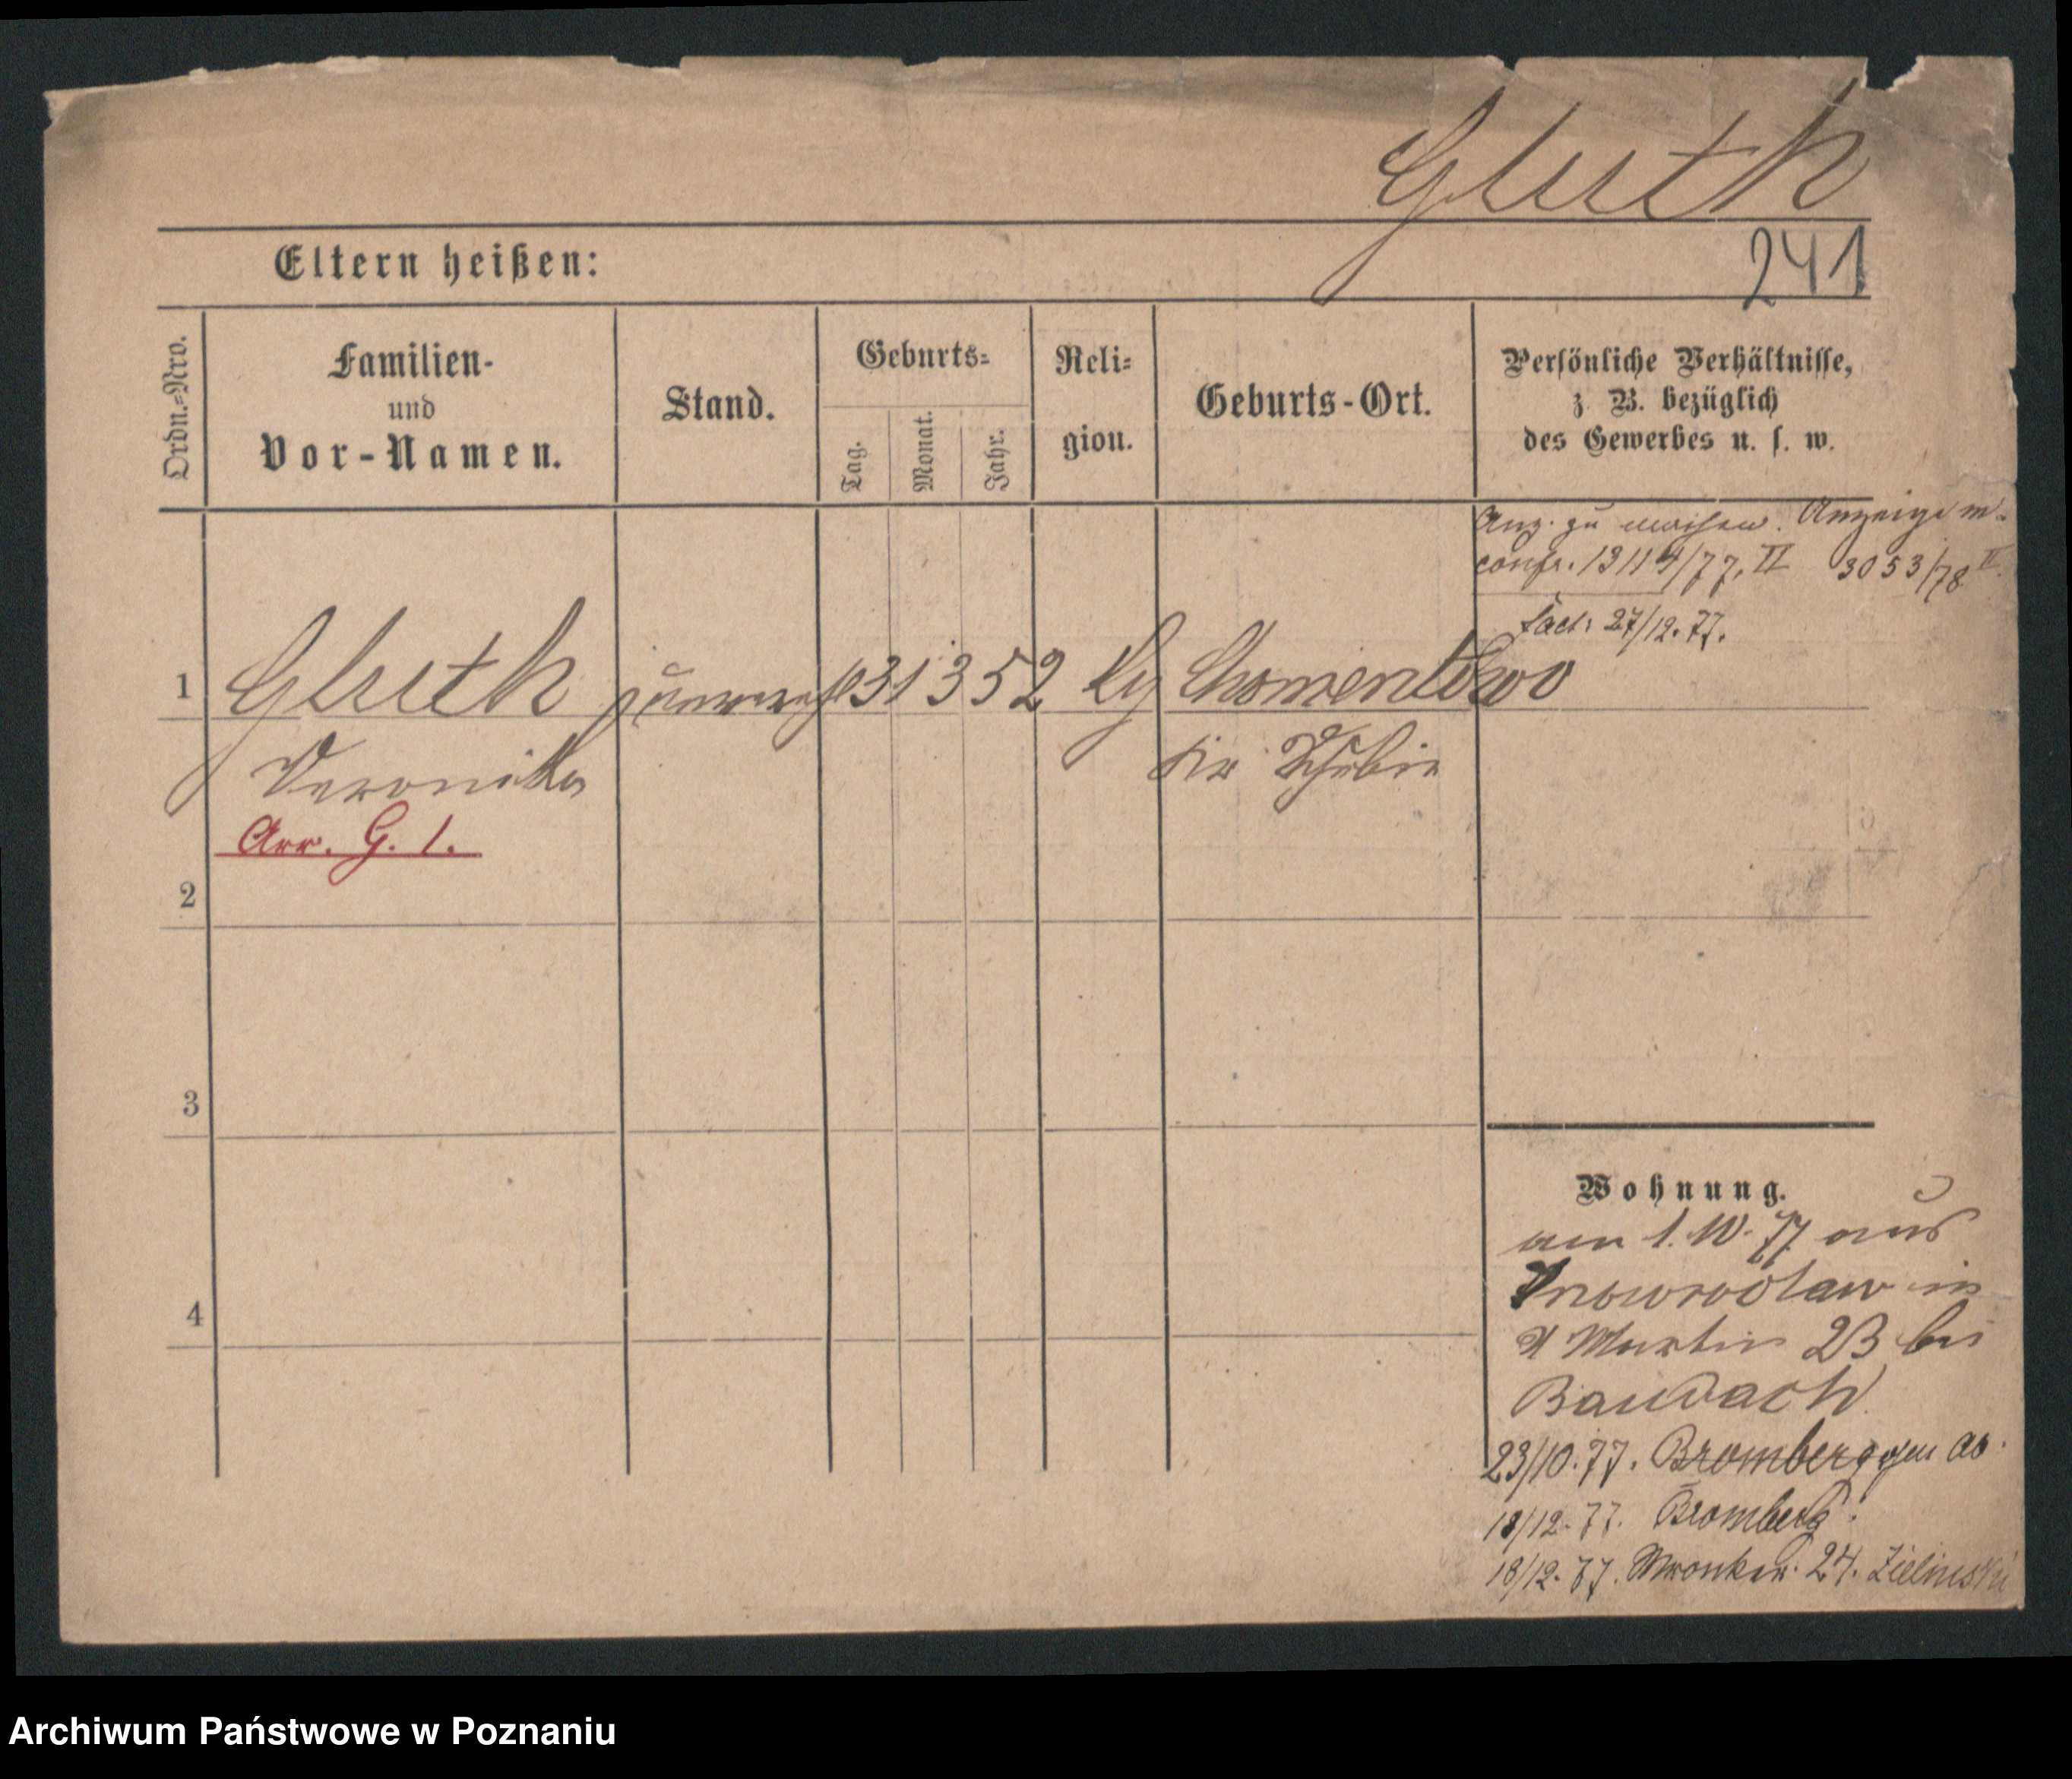 Gluth
241
Eltern heißen:
Ordn.=Nro.
Familien-
und
Vor-Namen.
Stand.
Geburts=
Tag.
Monat.
Jahr.
Reli=
gion.
Geburts-Ort.
Persönliche Verhältnisse,
z. B. bezüglich
des Gewerbes u. s. w.
Anz. zu machen. Anzeige m.
confr. 13114/77. II 3053/78 II.
27/12.77.
1 Gluth 31 3 52 Chomentowo
Veronika Kr Schubin
Arr. G. 1.
2
3
4
Wohnung.
am 1.10.77 aus
Inowrodlaw in
St Martin 23 bei
Baudach
23/10.77. Bromberg gen ab.
18/12.77. Bromberg.
18/12.77. Wronker. 24. Zielinski
Archiwum Państwowe w Poznaniu